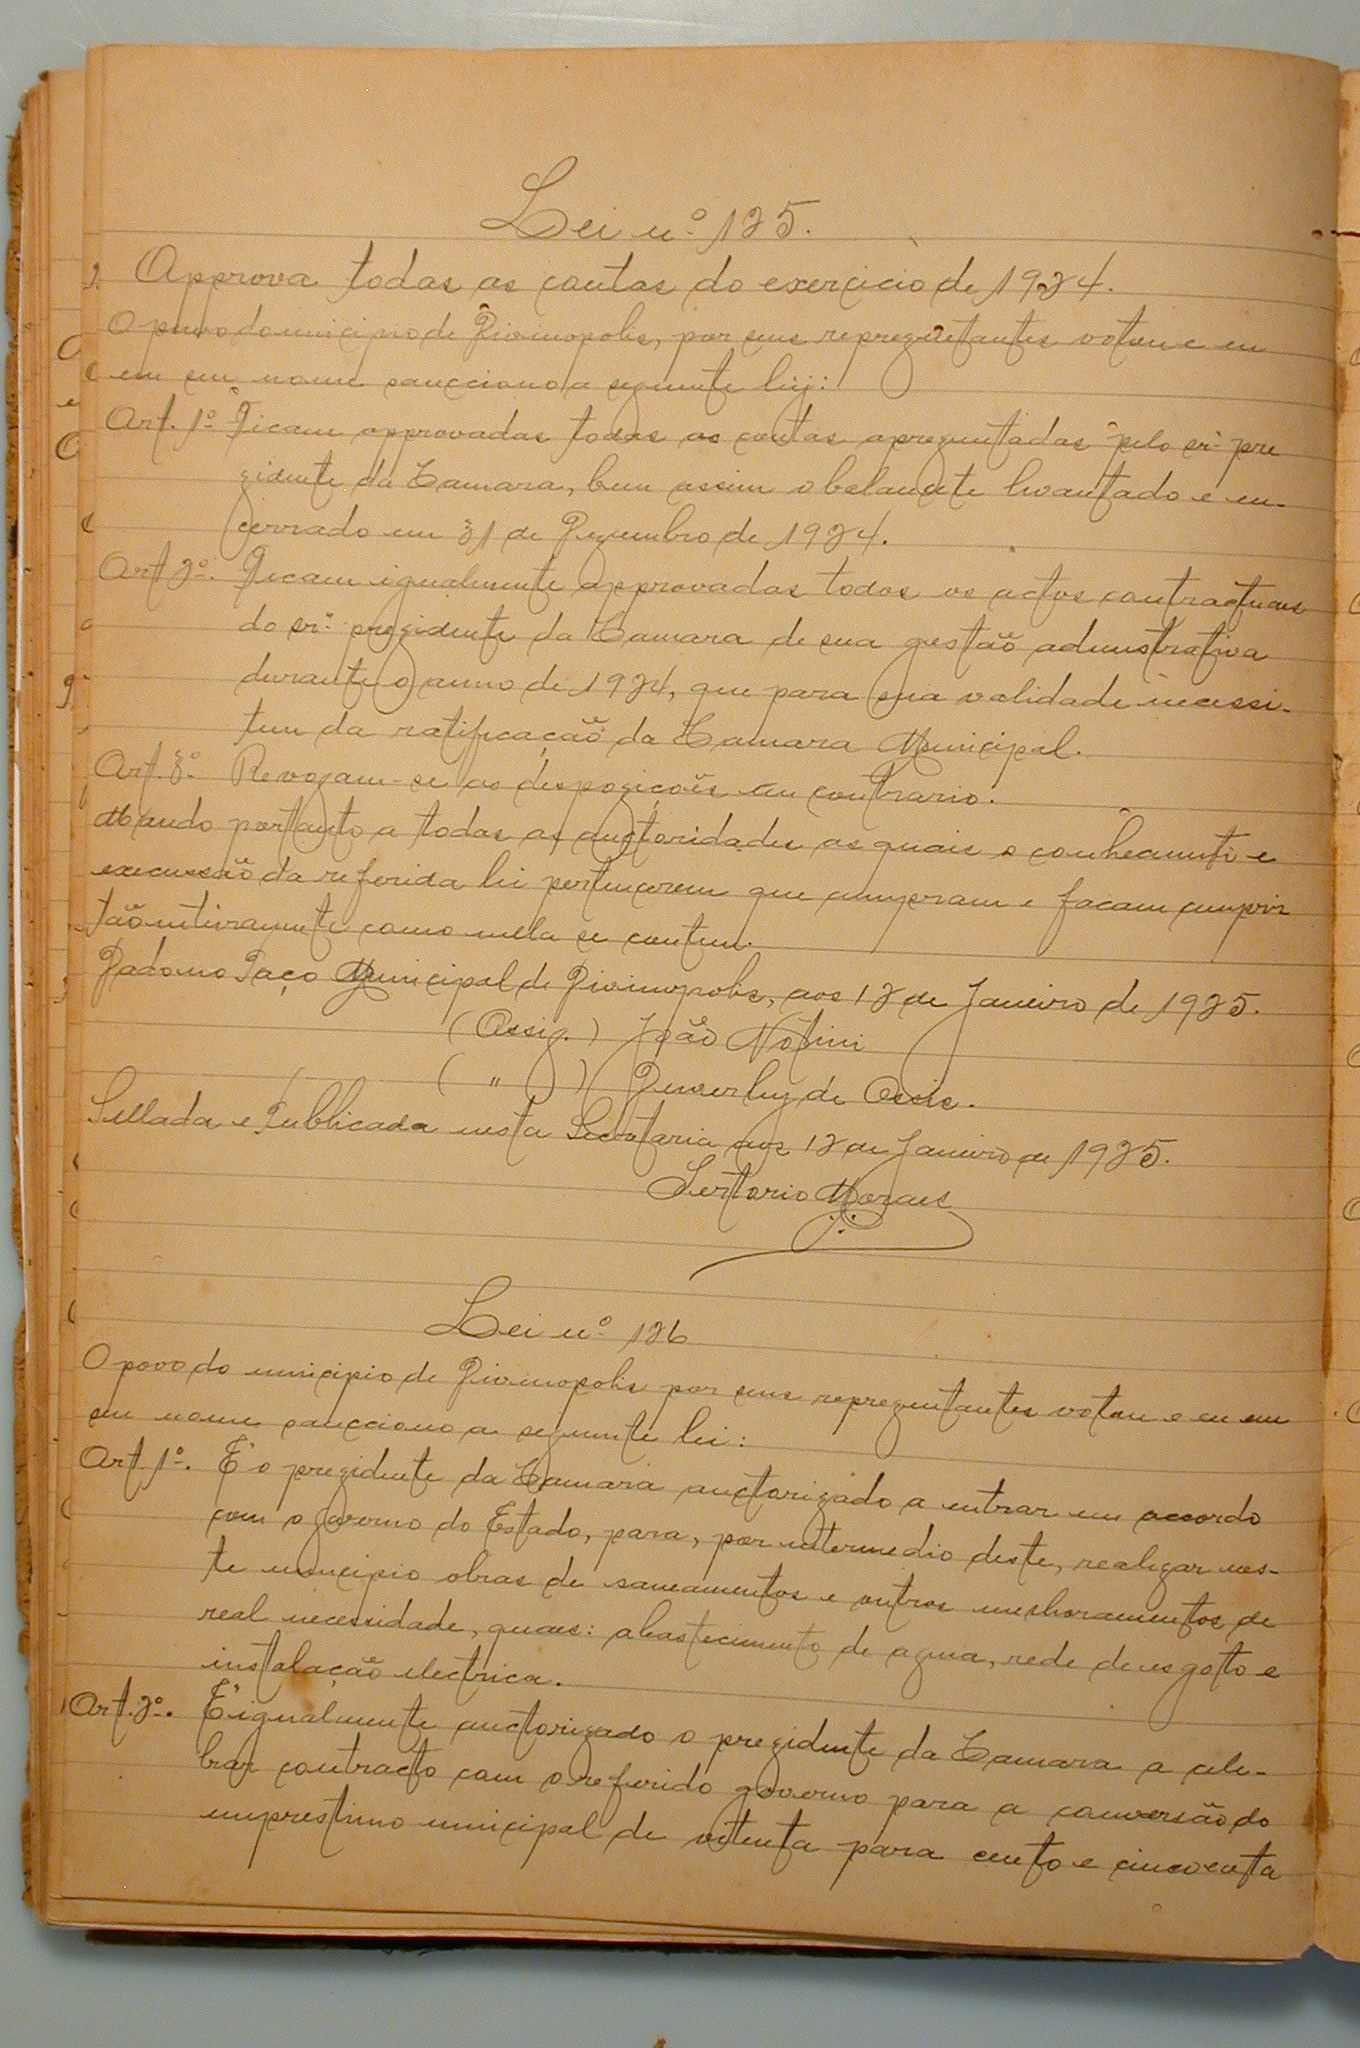 Lei nº 125.
Approva todas as contas do exercicio de 1924.
O povo do municipio de Divinopolis, por seus reprezentantes votou e eu
em seu nome sancciono a seguinte lei:
Art. 1º Ficam approvadas todas as contas aprezentadas pelo snr. pre
zidente da Camara, bem assim o balancete levantado e en-
cerrado em 31 de Dezembro de 1924.
Art 2º. Ficam igualmente approvadas todos os actos contractuaes
do snr. prezidente da Camara de sua gestão admistrativa
durante o anno de 1924, que para sua validade necessi-
tem da ratificação da Camara Municipal.
Art. 3º. Revogam-se as despozições em contrario.
Mando portanto a todas as auctoridades as quais o conhecimento e
execussão da referida lei pertencerem que cumpram e facam cumprir
tão inteiramente como nella se contem.
Dado no Paço Municipal de Divinopolis, aos 12 de Janeiro de 1925.
(Assig.) João Notini
( " ) de Assis.
Sellada e Publicada nesta Secretaria aos 12 de Janeiro de 1925.
Sertorio Moraes
Lei nº 126
O povo do municipio de Divinopolis por seus reprezentantes votou e eu em
seu nome sancciono a seguinte lei:
Art. 1º. É o prezidente da Camara auctorizado a entrar em accordo
com o governo do Estado, para, por intermedio deste, realizar nes-
te municipio obras de saneamentos e outros melhoramentos de
real necessidade, quaes: abastecimento de agua, rede de esgoto e
instalação electrica.
Art. 2º. É igualmente auctorizado o prezidente da Camara a cele-
brar contracto com o referido governo para a conversão do
emprestimo municipal de oitenta para cento e cincoenta